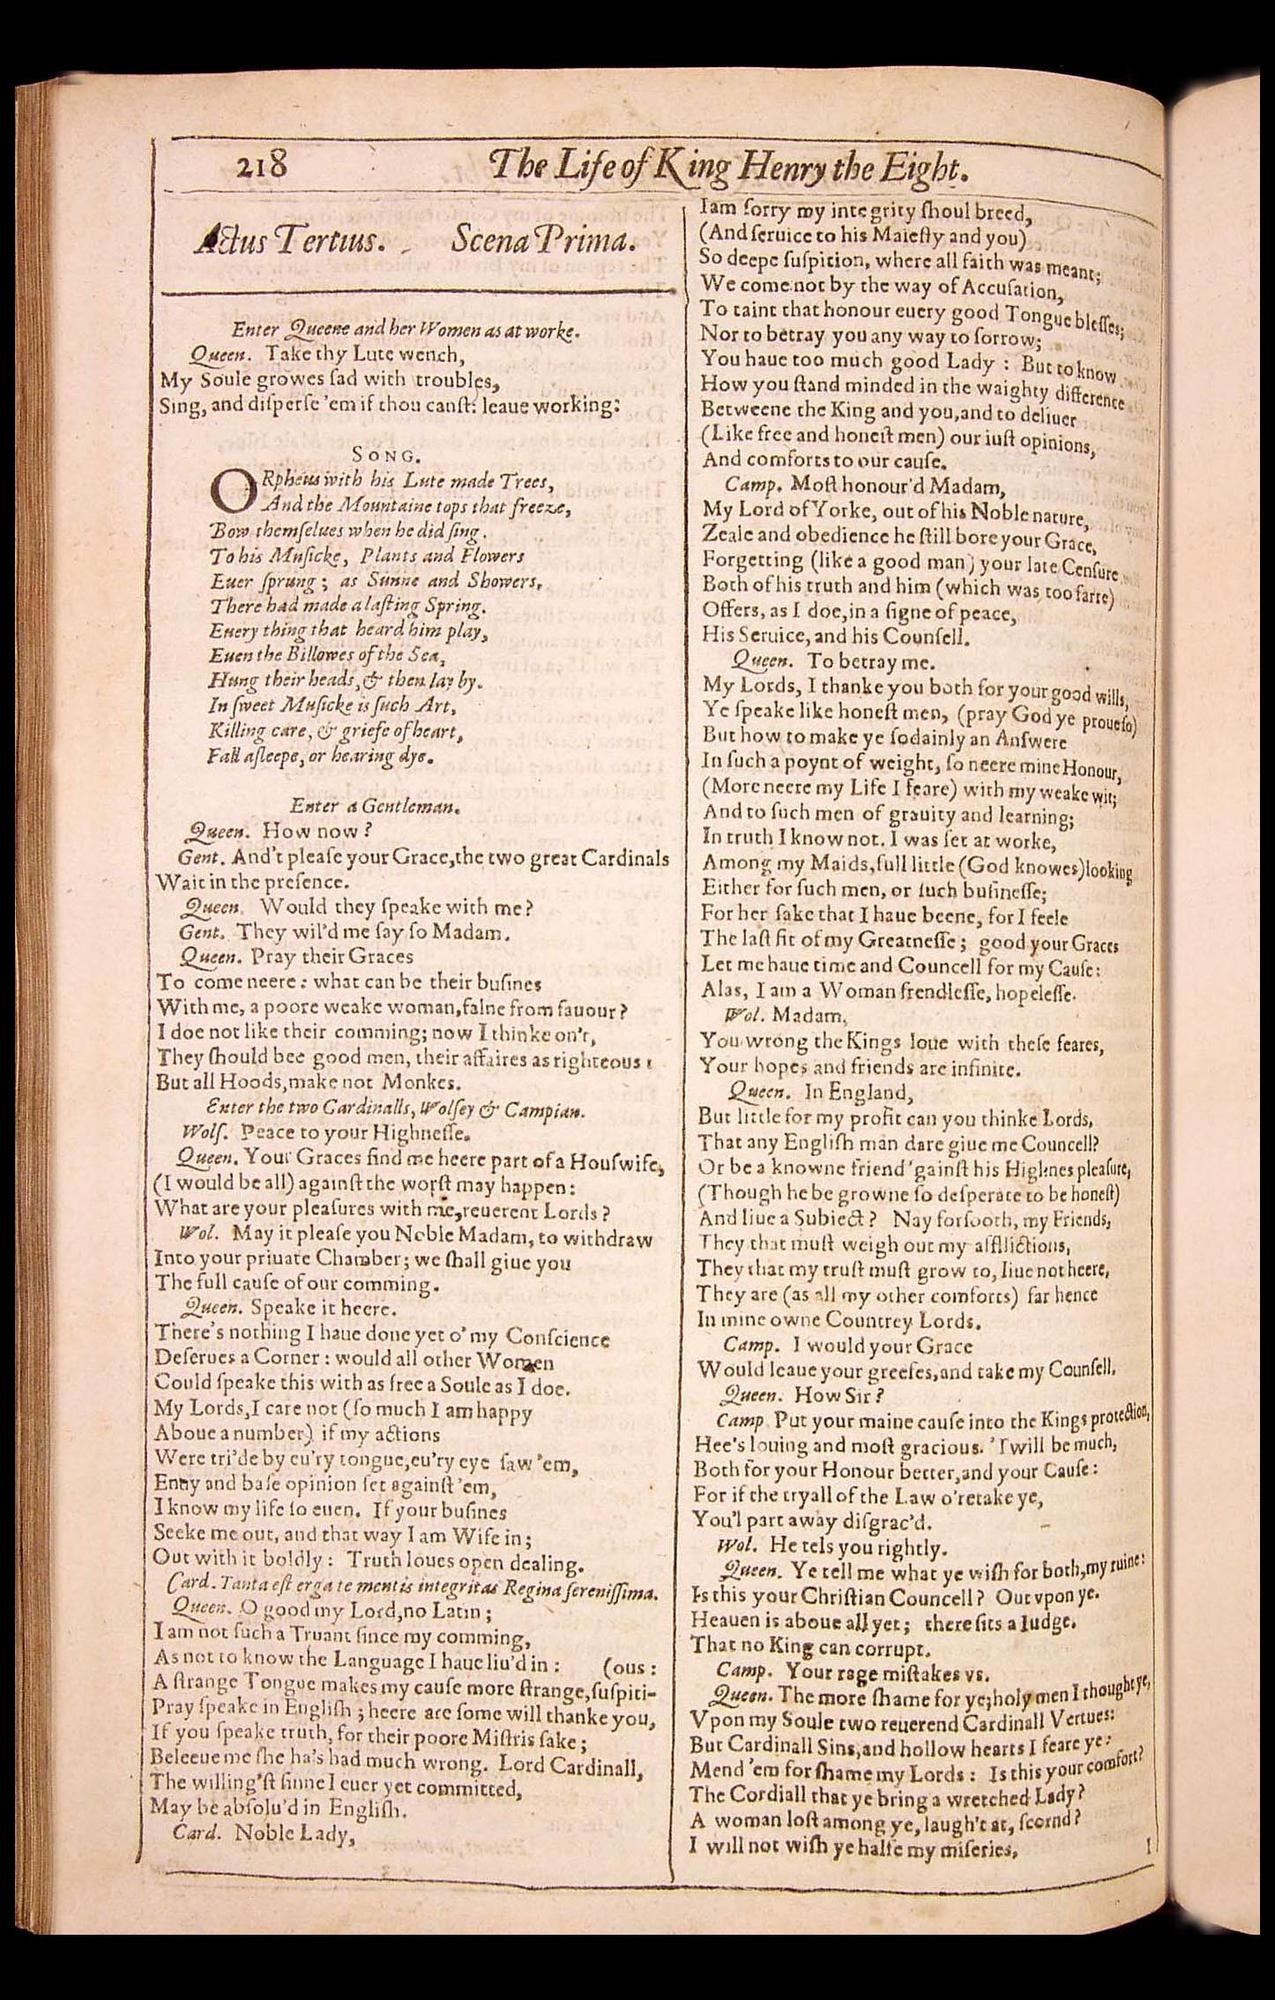 218
The Life of King Henry the Eight.
Actus Tertius. Scena Prima.
Enter Queene and her Women as at worke.
Queen. Take thy Lute wench,
My Soule growes ſad with troubles,
Sing, and diſperſe 'em if thou canſt: leaue working:
SONG.
ORpheus with his Lute made Trees,
And the Mountaine tops that freeze,
Bow themſelues when he did ſing.
To his Muſicke, Plants and Flowers
Euer ſprung; as Sunne and Showers,
There had made a laſting Spring.
Euery thing that heard him play,
Euen the Billowes of the Sea,
Hung their heads, & then lay by.
In ſweet Muſicke is ſuch Art,
Killing care, & griefe of heart,
Fall aſleepe, or hearing dye.
Enter a Gentleman.
Queen. How now?
Gent. And't pleaſe your Grace, the two great Cardinals
Wait in the preſence.
Queen. Would they ſpeake with me?
Gent. They wil'd me ſay ſo Madam.
Queen. Pray their Graces
To come neere: what can be their buſines
With me, a poore weake woman, falne from fauour?
I doe not like their comming; now I thinke on't,
They ſhould bee good men, their affaires as righteous:
But all Hoods, make not Monkes.
Enter the two Cardinalls, Wolſey & Campian.
Wolſ. Peace to your Highneſſe.
Queen. Your Graces find me heere part of a Houſwife,
(I would be all) againſt the worſt may happen:
What are your pleaſures with me, reuerent Lords?
Wol. May it pleaſe you Noble Madam, to withdraw
Into your priuate Chamber; we ſhall giue you
The full cauſe of our comming.
Queen. Speake it heere.
There's nothing I haue done yet o' my Conſcience
Deſerues a Corner: would all other Women
Could ſpeake this with as free a Soule as I doe.
My Lords, I care not (ſo much I am happy
Aboue a number) if my actions
Were tri'de by eu'ry tongue, eu'ry eye ſaw 'em,
Enuy and baſe opinion ſet againſt 'em,
I know my life ſo euen. If your buſines
Seeke me out, and that way I am Wife in;
Out with it boldly: Truth loues open dealing.
Card. Tanta eſt erga te mentis integritas Regina ſereniſſima.
Queen. O good my Lord, no Latin;
I am not ſuch a Truant ſince my comming,
As not to know the Language I haue liu'd in: (ous:
A ſtrange Tongue makes my cauſe more ſtrange, ſuſpiti-
Pray ſpeake in Engliſh; heere are ſome will thanke you,
If you ſpeake truth, for their poore Miſtris ſake;
Beleeue me ſhe ha's had much wrong. Lord Cardinall,
The willing'ſt ſinne I euer yet committed,
May be abſolu'd in Engliſh.
Card. Noble Lady,
I am ſorry my integrity ſhoul breed,
(And ſeruice to his Maieſty and you)
So deepe ſuſpition, where all faith was meant;
We come not by the way of Accuſation,
To taint that honour euery good Tongue bleſſes;
Nor to betray you any way to ſorrow;
You haue too much good Lady: But to know
How you ſtand minded in the waighty difference
Betweene the King and you, and to deliuer
(Like free and honeſt men) our iuſt opinions,
And comforts to our cauſe.
Camp. Moſt honour'd Madam,
My Lord of Yorke, out of his Noble nature,
Zeale and obedience he ſtill bore your Grace,
Forgetting (like a good man) your late Cenſure
Both of his truth and him (which was too farre)
Offers, as I doe, in a ſigne of peace,
His Seruice, and his Counſell.
Queen. To betray me.
My Lords, I thanke you both for your good wills,
Ye ſpeake like honeſt men, (pray God ye proue ſo)
But how to make ye ſodainly an Anſwere
In ſuch a poynt of weight, ſo neere mine Honour,
(More neere my Life I feare) with my weake wit;
And to ſuch men of grauity and learning;
In truth I know not. I was ſet at worke,
Among my Maids, full little (God knowes) looking
Either for ſuch men, or ſuch buſineſſe;
For her ſake that I haue beene, for I feele
The laſt fit of my Greatneſſe; good your Graces
Let me haue time and Councell for my Cauſe:
Alas, I am a Woman frendleſſe, hopeleſſe.
Wol. Madam,
You wrong the Kings loue with theſe feares,
Your hopes and friends are infinite.
Queen. In England,
But little for my profit can you thinke Lords,
That any Engliſh man dare giue me Councell?
Or be a knowne friend 'gainſt his Highnes pleaſure,
(Though he be growne ſo deſperate to be honeſt)
And liue a Subiect? Nay forſooth, my Friends,
They that muſt weigh out my afflictions,
They that my truſt muſt grow to, liue not heere,
They are (as all my other comforts) far hence
In mine owne Countrey Lords.
Camp. I would your Grace
Would leaue your greefes, and take my Counſell.
Queen. How Sir?
Camp. Put your maine cauſe into the Kings protection,
Hee's louing and moſt gracious. 'Twill be much,
Both for your Honour better, and your Cauſe:
For if the tryall of the Law o'retake ye,
You'l part away diſgrac'd.
Wol. He tels you rightly.
Queen. Ye tell me what ye wiſh for both, my ruine:
Is this your Chriſtian Councell? Out vpon ye.
Heauen is aboue all yet; there ſits a Iudge.
That no King can corrupt.
Camp. Your rage miſtakes vs.
Queen. The more ſhame for ye; holy men I thought ye,
Vpon my Soule two reuerend Cardinall Vertues:
But Cardinall Sins, and hollow hearts I feare ye:
Mend 'em for ſhame my Lords: Is this your comfort?
The Cordiall that ye bring a wretched Lady?
A woman loſt among ye, laugh't at, ſcornd?
I will not wiſh ye halfe my miſeries,
I